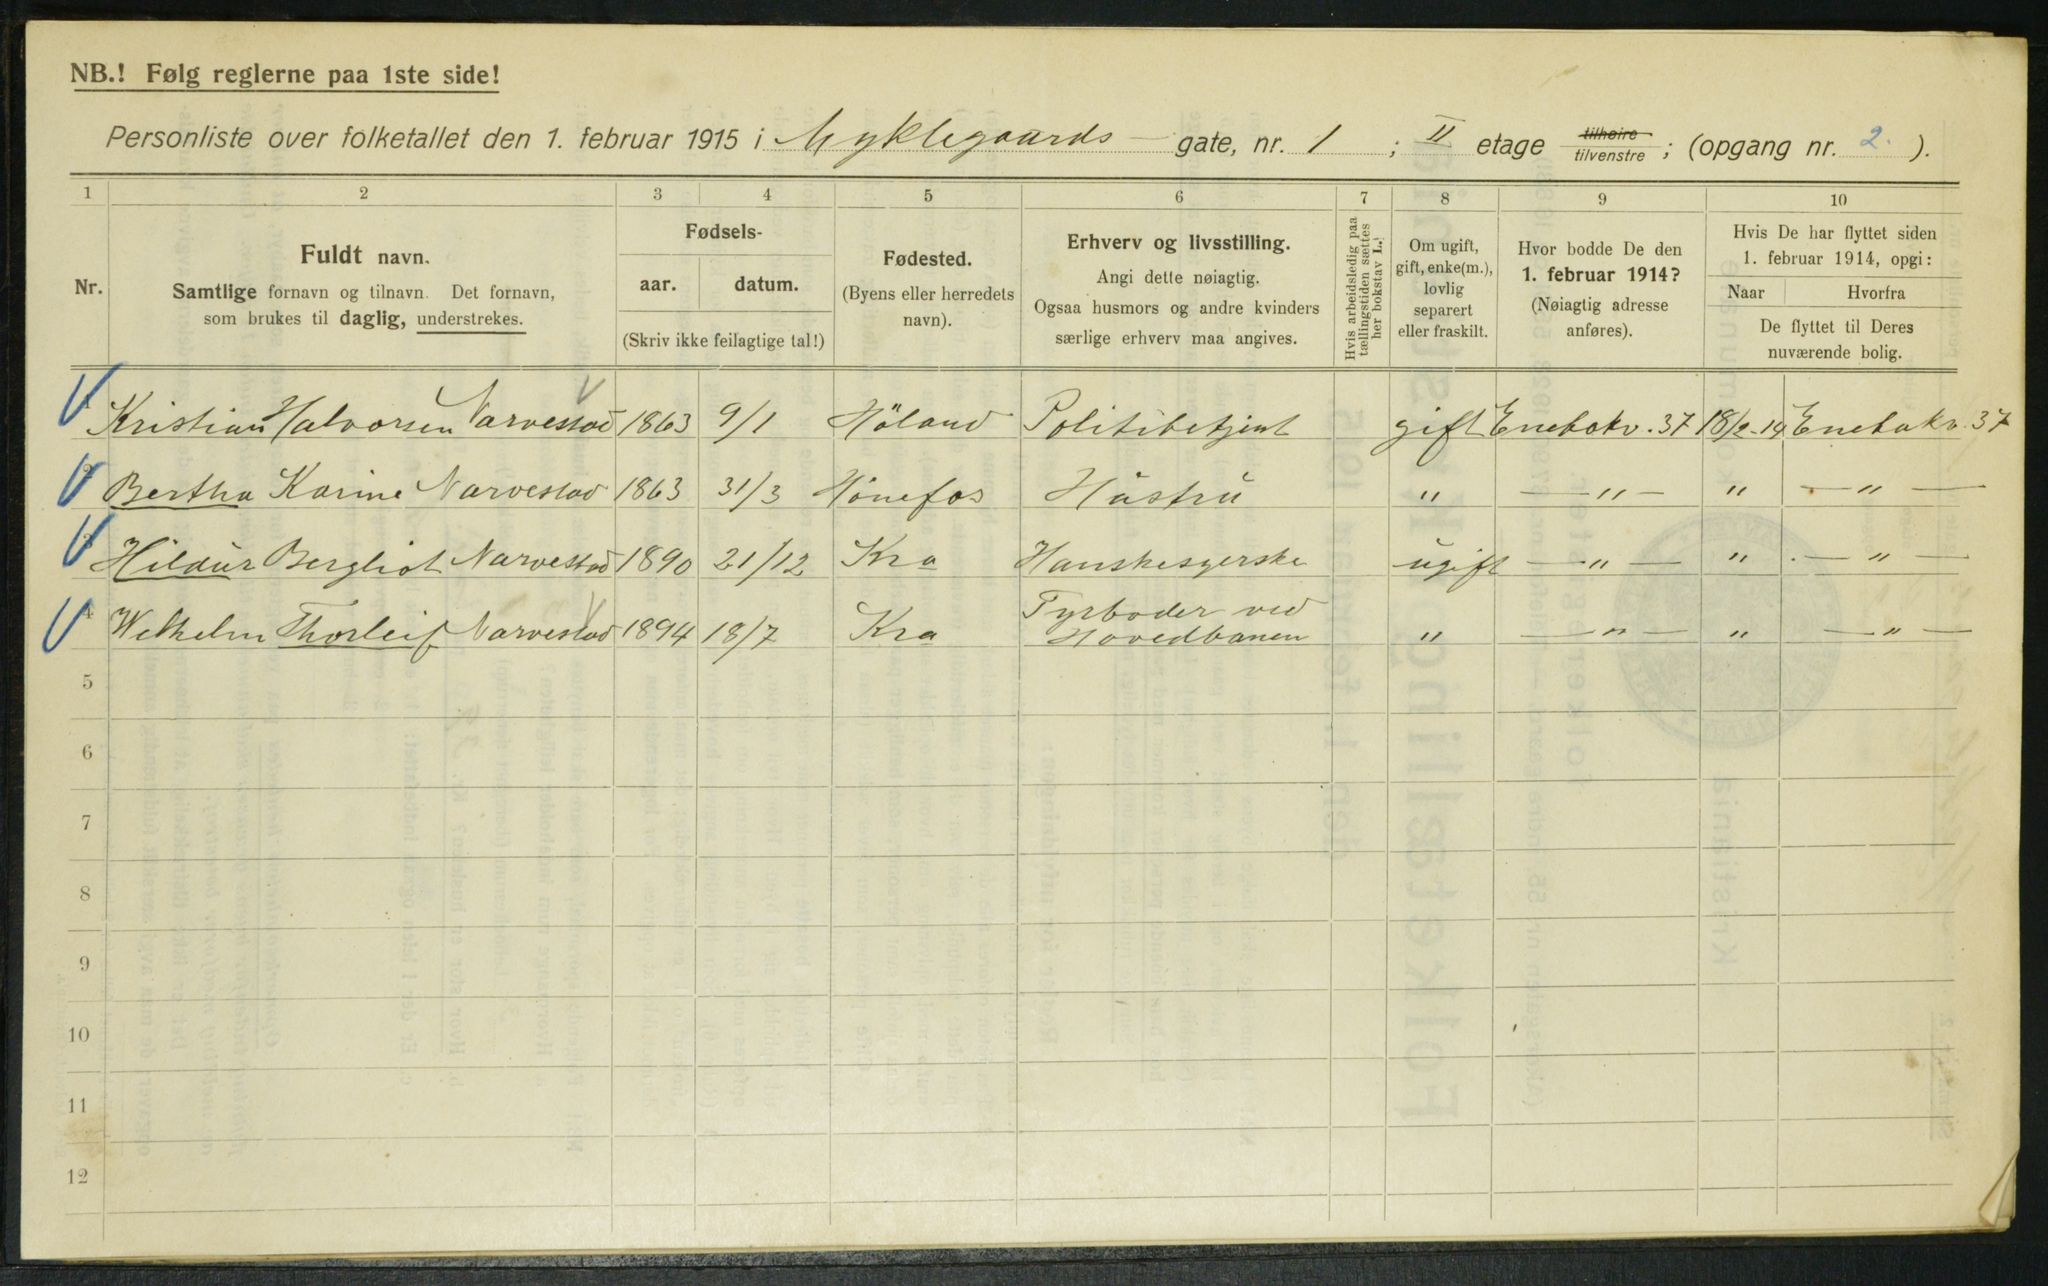 NB.! Følg reglerne paa 1ste side!
Personliste over folketallet den 1. februar 1915 i Myklegaards — gate, nr. 1 ; II etage tilhøire tilvenstre ; (opgang nr. 2. ).
1 2 3 4 5 6 7 8 9 10
Nr.
Fuldt navn.
Samtlige fornavn og tilnavn. Det fornavn,
som brukes til daglig, understrekes.
Fødsels-
aar. datum.
(Skriv ikke feilagtige tal!)
Fødested.
(Byens eller herredets
navn).
Erhverv og livsstilling.
Angi dette nøiagtig.
Ogsaa husmors og andre kvinders
særlige erhverv maa angives.
Hvis arbeidsledig paa
tællingstiden sættes
her bokstav L.
Om ugift,
gift, enke(m.),
lovlig
separert
eller fraskilt.
Hvor bodde De den
1. februar 1914?
(Nøiagtig adresse
anføres).
Hvis De har flyttet siden
1. februar 1914, opgi:
Naar Hvorfra
De flyttet til Deres
nuværende bolig.
1 Kristian Halvorsen Narvestad 1863 9/1 Høland Politibetjent gift Enebakv. 37 18/2-14 Enebakv. 37
2 Bertha Karine Narvestad 1863 31/3 Hönefos Hüstrü " — " — " — " —
3 Hildür Bergliot Narvestad 1890 21/12 Kra Hanskesyerske ugift — " — " — " —
4 Wilhelm Thorleif Narvestad 1894 18/7 Kra Fyrbøder ved
Hovedbanen " — " — " — " —
5
6
7
8
9
10
11
12